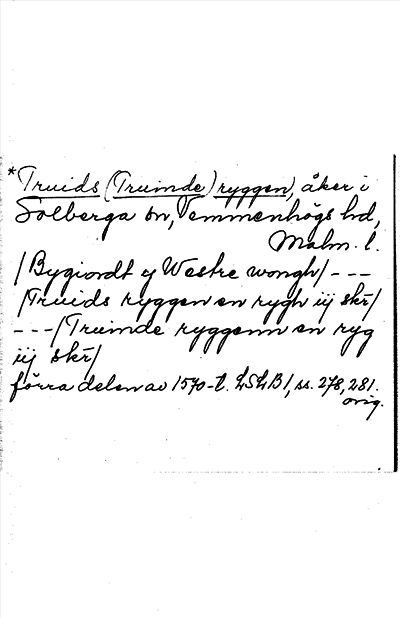 *Truids (Truinde) ryggen, åker i
Solberga sn, Vemmenhögs hd,
Malm. l.
/Bygiordt y Westre wongh/ ---
/Truids ryggen en rygh iij skr/
---/Truinde ryggenn en ryg
iij skr/
förra delen av 1570-t. LSLB1, ss. 278, 281.
orig.